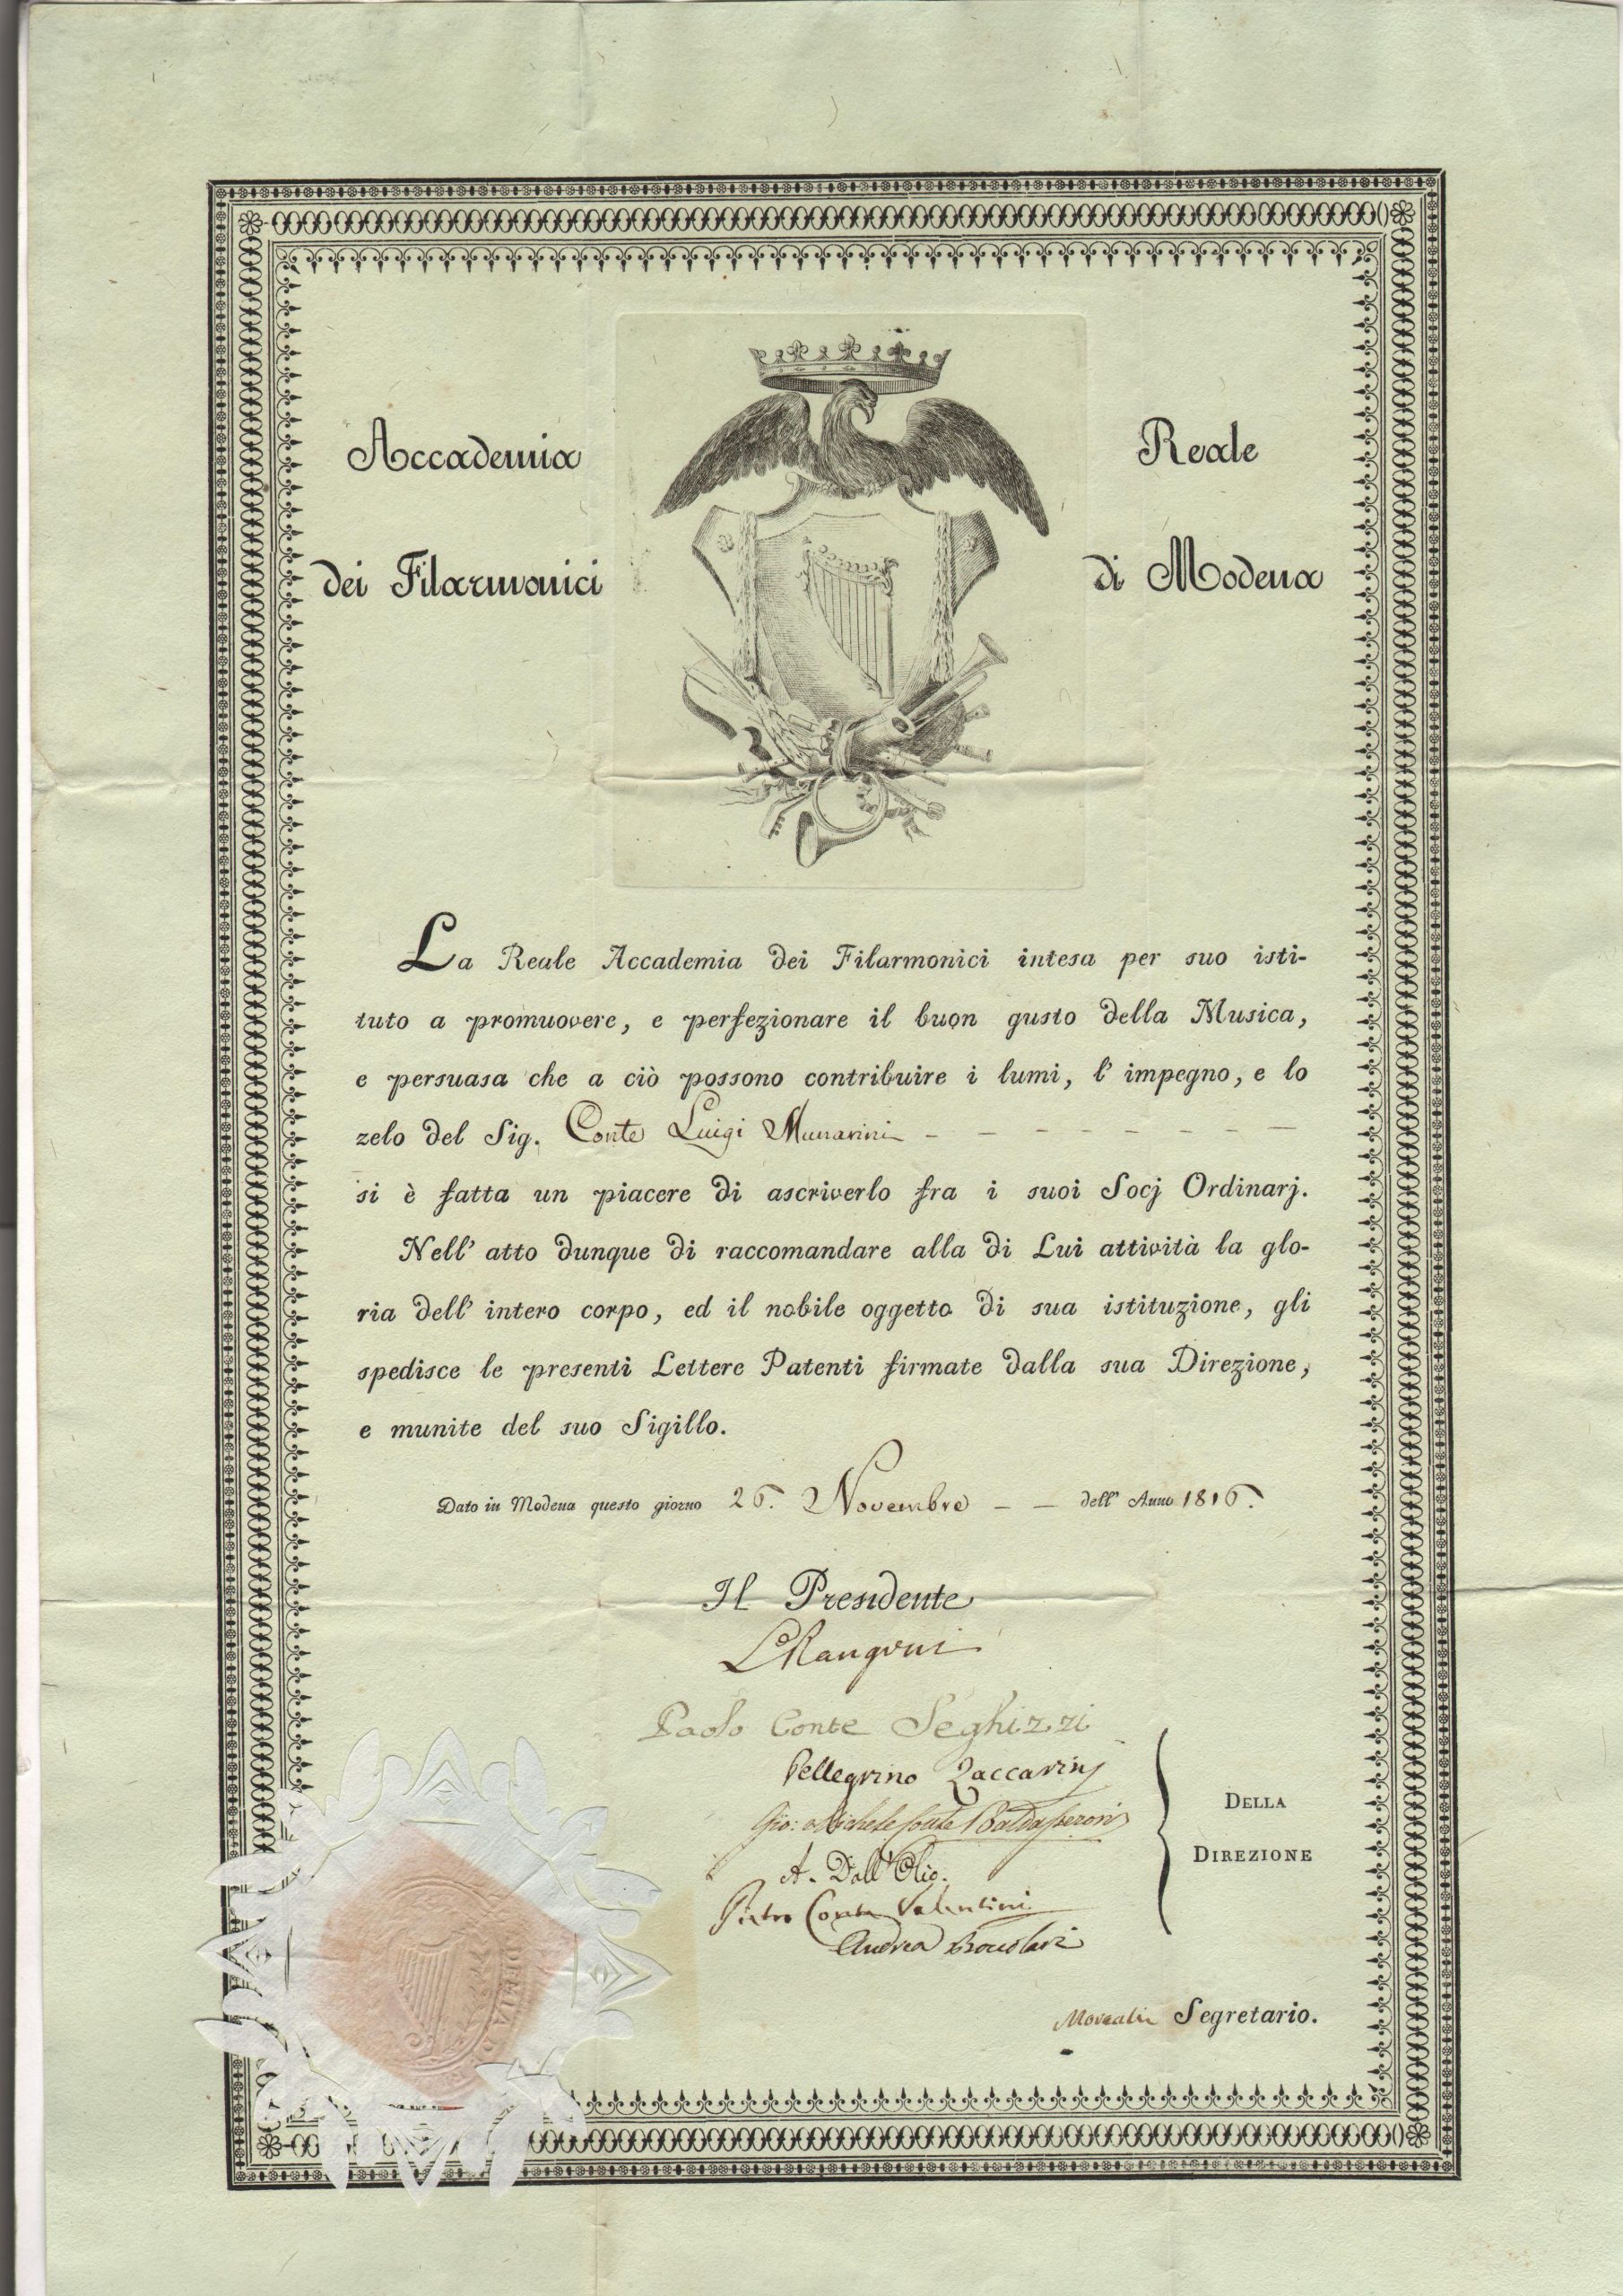 Accademia Reale
dei Filarmonici di Modena
La Reale Accademia dei Filarmonici intesa per suo isti-
tuto a promuovere, e perfezionare il buon gusto della Musica,
e persuasa che a ciò possono contribuire i lumi, l' impegno, e lo
zelo del Sig. Conte Luigi Munarini - - - - - - -
si è fatta un piacere di ascriverlo fra i suoi Socj Ordinarj.
Nell' atto dunque di raccomandare alla di Lui attività la glo-
ria dell' intero corpo, ed il nobile oggetto di sua istituzione, gli
spedisce le presenti Lettere Patenti firmate dalla sua Direzione,
e munite del suo Sigillo.
Dato in Modena questo giorno 26. Novembre - - dell' Anno 1816.
Il Presidente
L Rangoni
Paolo Conte Seghizzi
Pellegrino Zaccarini
Gio: Michele Conte
A. Dall'Olio.
Pietro Conte Valentini
Andrea
DELLA
DIREZIONE
Segretario.